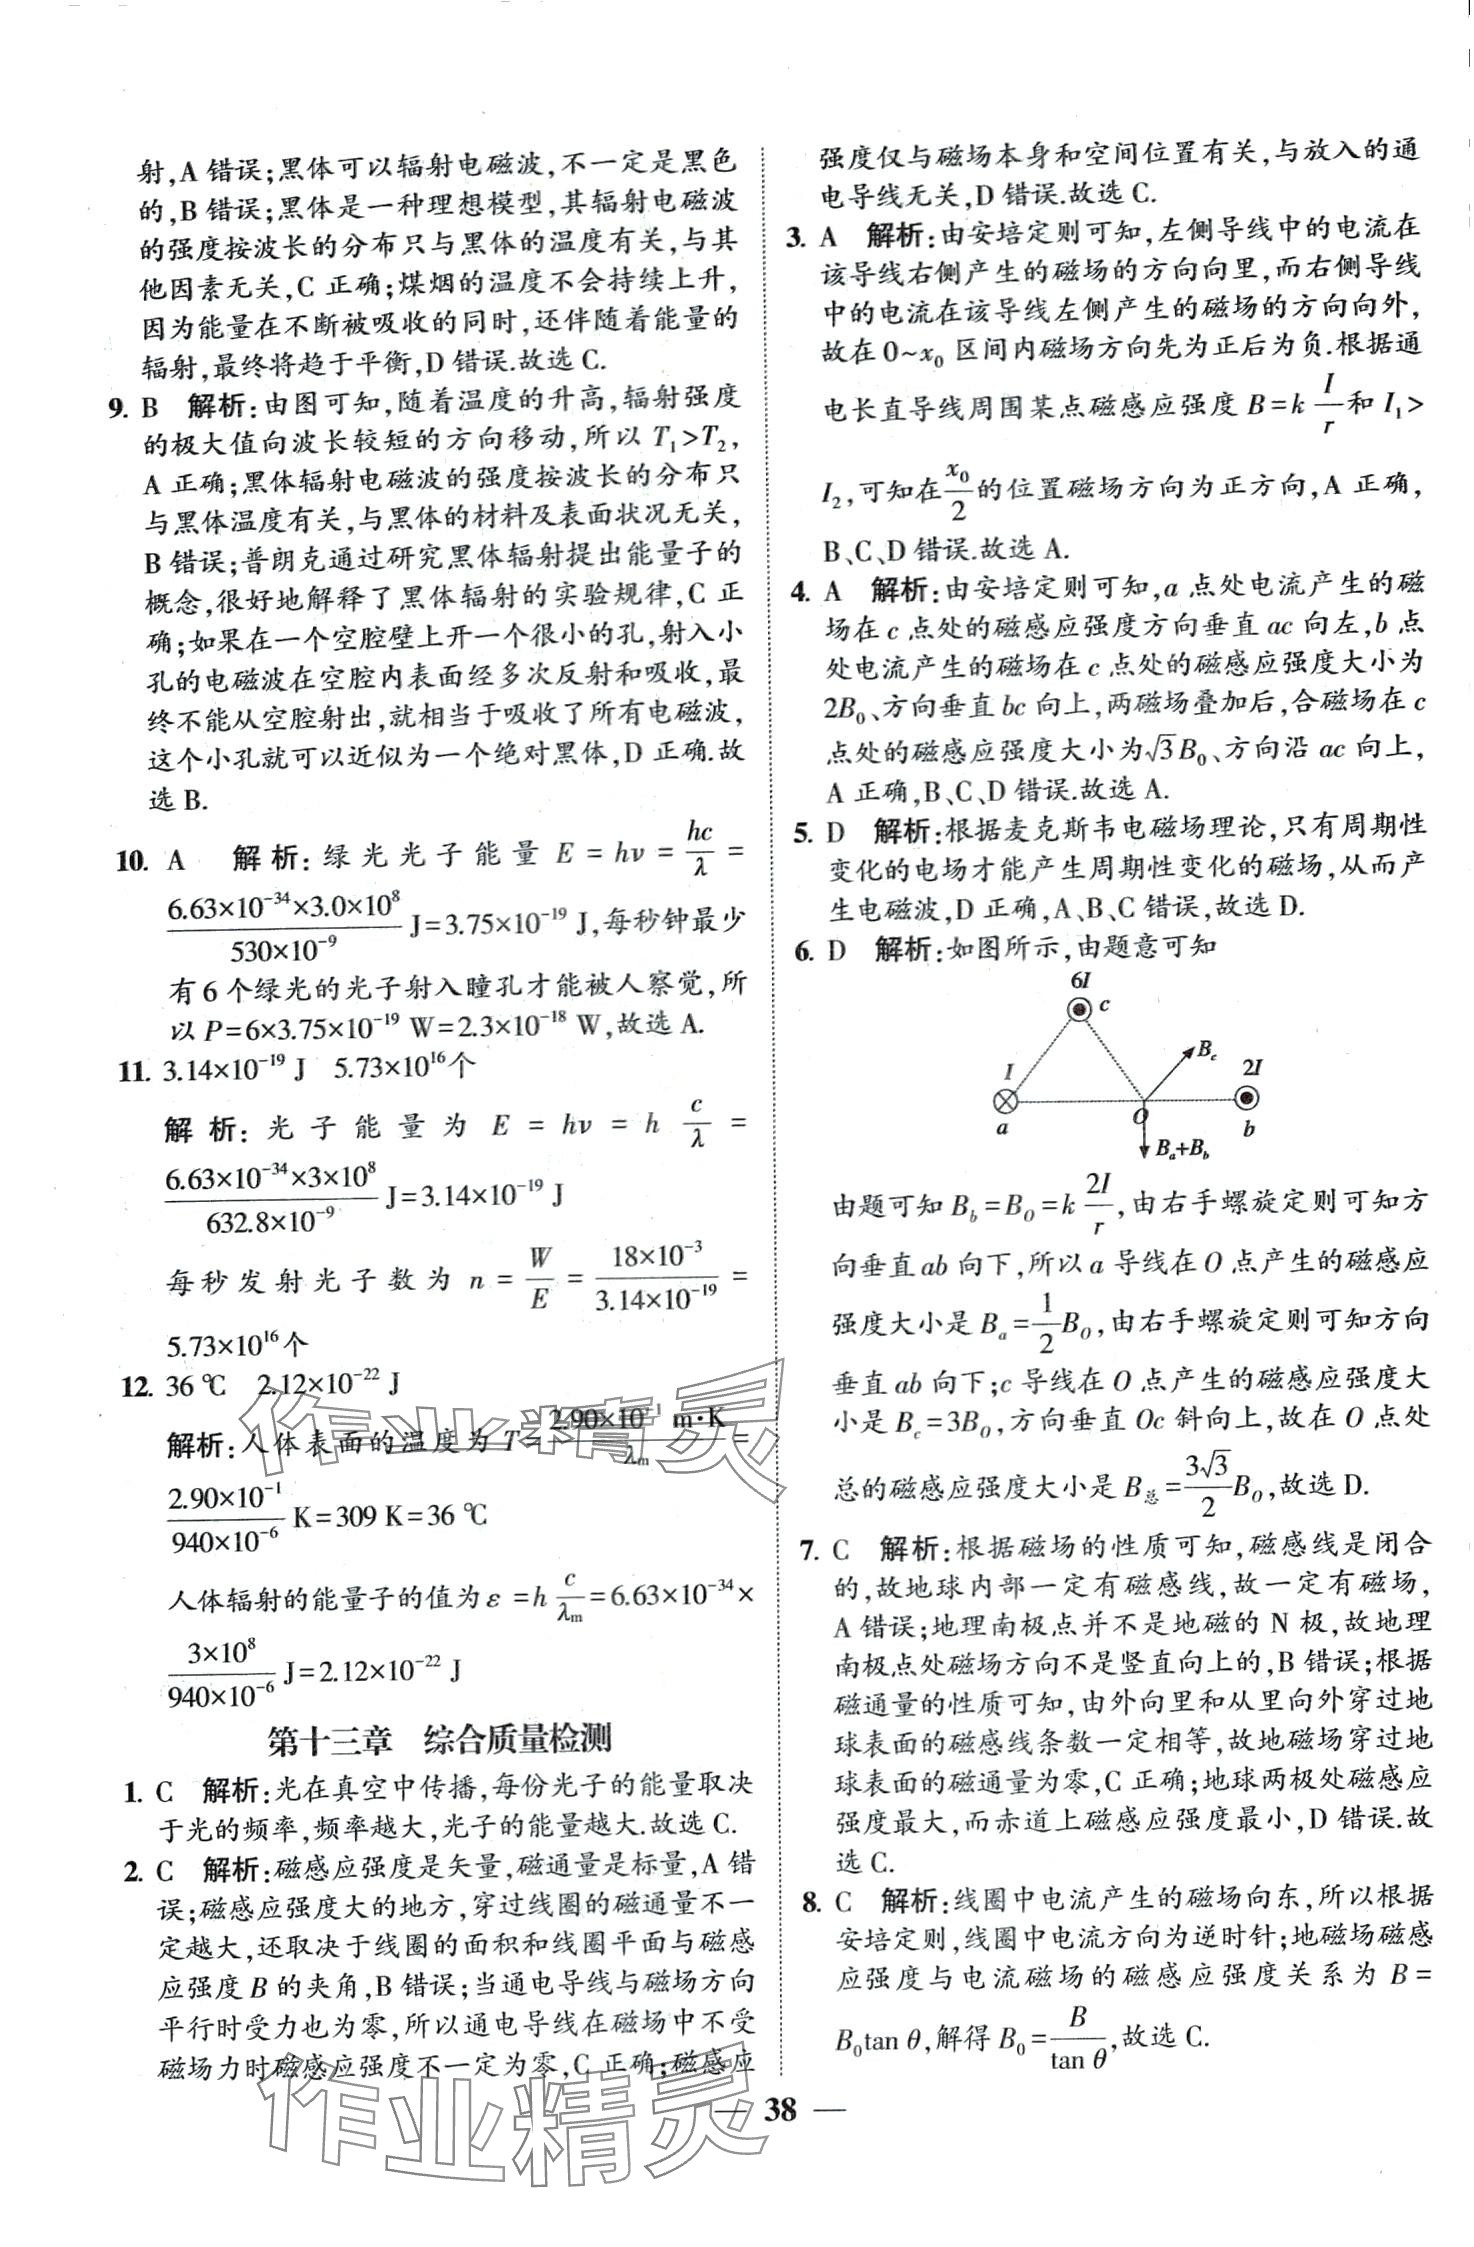 射,A 错误;黑体可以辐射电磁波,不一定是黑色
的,B 错误;黑体是一种理想模型,其辐射电磁波
的强度按波长的分布只与黑体的温度有关,与其
他因素无关,C 正确;煤烟的温度不会持续上升,
因为能量在不断被吸收的同时,还伴随着能量的
辐射,最终将趋于平衡,D 错误.故选 C.
9. B 解析:由图可知,随着温度的升高,辐射强度
的极大值向波长较短的方向移动,所以 T₁>T₂,
A 正确;黑体辐射电磁波的强度按波长的分布只
与黑体温度有关,与黑体的材料及表面状况无关,
B 错误;普朗克通过研究黑体辐射提出能量子的
概念,很好地解释了黑体辐射的实验规律,C 正
确;如果在一个空腔壁上开一个很小的孔,射入小
孔的电磁波在空腔内表面经多次反射和吸收,最
终不能从空腔射出,就相当于吸收了所有电磁波,
这个小孔就可以近似为一个绝对黑体,D 正确.故
选 B.
10. A 解析:绿光光子能量 E=hν=hc/λ=
(6.63×10⁻³⁴×3.0×10⁸)/(530×10⁻⁹) J=3.75×10⁻¹⁹ J,每秒钟最少
有 6 个绿光的光子射入瞳孔才能被人察觉,所
以 P=6×3.75×10⁻¹⁹ W=2.3×10⁻¹⁸ W,故选 A.
11. 3.14×10⁻¹⁹ J 5.73×10¹⁶个
解析:光子能量为 E=hν=h c/λ=
(6.63×10⁻³⁴×3×10⁸)/(632.8×10⁻⁹) J=3.14×10⁻¹⁹ J
每秒发射光子数为 n=W/E=(18×10⁻³)/(3.14×10⁻¹⁹)=
5.73×10¹⁶个
12. 36 ℃ 2.12×10⁻²² J
解析:人体表面的温度为 T=(2.90×10⁻¹ m·K)/λₘ=
(2.90×10⁻¹)/(940×10⁻⁶) K=309 K=36 ℃
人体辐射的能量子的值为 ε=h c/λₘ=6.63×10⁻³⁴×
(3×10⁸)/(940×10⁻⁶) J=2.12×10⁻²² J
第十三章 综合质量检测
1. C 解析:光在真空中传播,每份光子的能量取决
于光的频率,频率越大,光子的能量越大.故选 C.
2. C 解析:磁感应强度是矢量,磁通量是标量,A 错
误;磁感应强度大的地方,穿过线圈的磁通量不一
定越大,还取决于线圈的面积和线圈平面与磁感
应强度 B 的夹角,B 错误;当通电导线与磁场方向
平行时受力也为零,所以通电导线在磁场中不受
磁场力时磁感应强度不一定为零,C 正确;磁感应
强度仅与磁场本身和空间位置有关,与放入的通
电导线无关,D 错误.故选 C.
3. A 解析:由安培定则可知,左侧导线中的电流在
该导线右侧产生的磁场的方向向里,而右侧导线
中的电流在该导线左侧产生的磁场的方向向外,
故在 0~x₀ 区间内磁场方向先为正后为负.根据通
电长直导线周围某点磁感应强度 B=k I/r 和 I₁>
I₂,可知在 x₀/2 的位置磁场方向为正方向,A 正确,
B、C、D 错误.故选 A.
4. A 解析:由安培定则可知,a 点处电流产生的磁
场在 c 点处的磁感应强度方向垂直 ac 向左,b 点
处电流产生的磁场在 c 点处的磁感应强度大小为
2B₀、方向垂直 bc 向上,两磁场叠加后,合磁场在 c
点处的磁感应强度大小为√3B₀、方向沿 ac 向上,
A 正确,B、C、D 错误.故选 A.
5. D 解析:根据麦克斯韦电磁场理论,只有周期性
变化的电场才能产生周期性变化的磁场,从而产
生电磁波,D 正确,A、B、C 错误,故选 D.
6. D 解析:如图所示,由题意可知
6I
c
I
B_c
2I
a
O
b
B_a+B_b
由题可知 B_b=B_O=k 2I/r,由右手螺旋定则可知方
向垂直 ab 向下,所以 a 导线在 O 点产生的磁感应
强度大小是 B_a=1/2 B_O,由右手螺旋定则可知方向
垂直 ab 向下;c 导线在 O 点产生的磁感应强度大
小是 B_c=3B_O,方向垂直 Oc 斜向上,故在 O 点处
总的磁感应强度大小是 B_总=(3√3)/2 B_O,故选 D.
7. C 解析:根据磁场的性质可知,磁感线是闭合
的,故地球内部一定有磁感线,故一定有磁场,
A 错误;地理南极点并不是地磁的 N 极,故地理
南极点处磁场方向不是竖直向上的,B 错误;根据
磁通量的性质可知,由外向里和从里向外穿过地
球表面的磁感线条数一定相等,故地磁场穿过地
球表面的磁通量为零,C 正确;地球两极处磁感应
强度最大,而赤道上磁感应强度最小,D 错误.故
选 C.
8. C 解析:线圈中电流产生的磁场向东,所以根据
安培定则,线圈中电流方向为逆时针;地磁场磁感
应强度与电流磁场的磁感应强度关系为 B=
B₀tan θ,解得 B₀=B/(tan θ),故选 C.
— 38 —
作业精灵
作业精灵